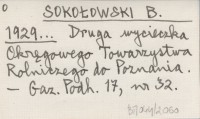 o
SOKOŁOWSKI B.
1929... Druga wycieczka
Okręgowego Towarzystwa
Rolniczego do Poznania.
— Gaz. Podh. 17, nr 32.